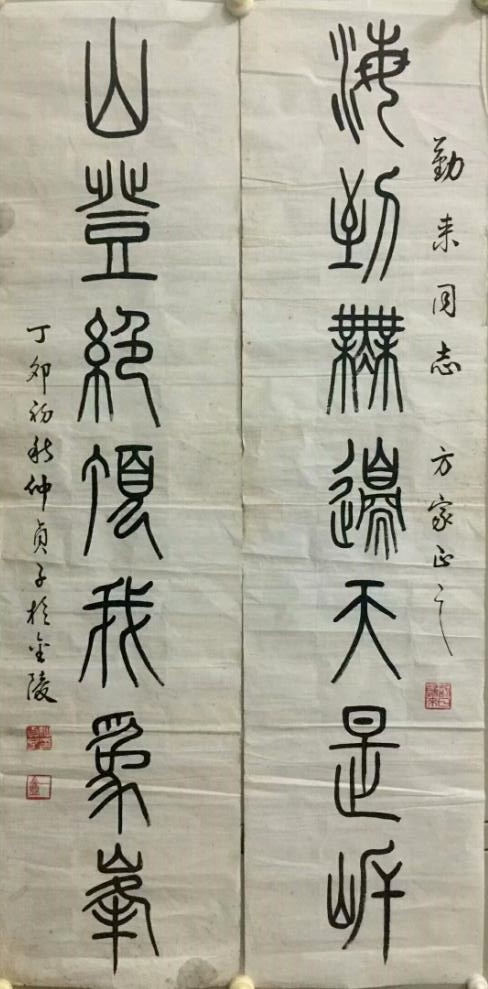 勤来同志 方家正之
海到無邊天是岸
山登絕頂我為峯
丁卯初秋仲貞子於金陵